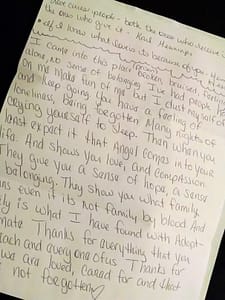 Love cures people - both the ones who receive
the ones who give it - Karl Menninger
• If I know what Love is, its because of you.
I came into this place broken, bruised, feeling
alone, no sense of belonging. I've had people
on me make fun of me but I dust myself
and keep going you have a feeling of
loneliness, being forgotten Many nights of
crying yourself to sleep. Then when you
least expect it that Angel comes into your
life. And shows you love, and compassion
They give you a sense of hope, a sense
belonging. They show you what family
means even if its not family by blood And
is what I have found with Adopt-
mate Thanks for everything that you
each and every one of us Thanks for
we are loved, cared for and that
not forgotten